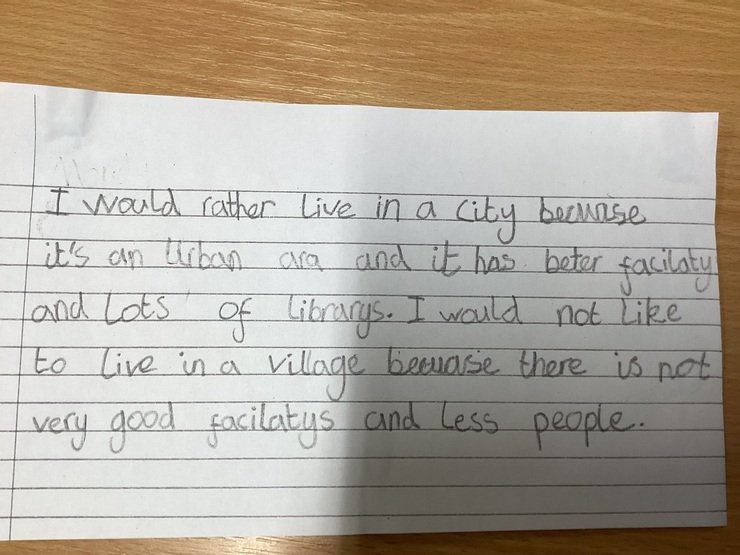 I would rather live in a city becuase
it's an Urban ara and it has beter facilaty
and Lots of librarys. I would not like
to live in a village becuase there is not
very good facilatys and less people.